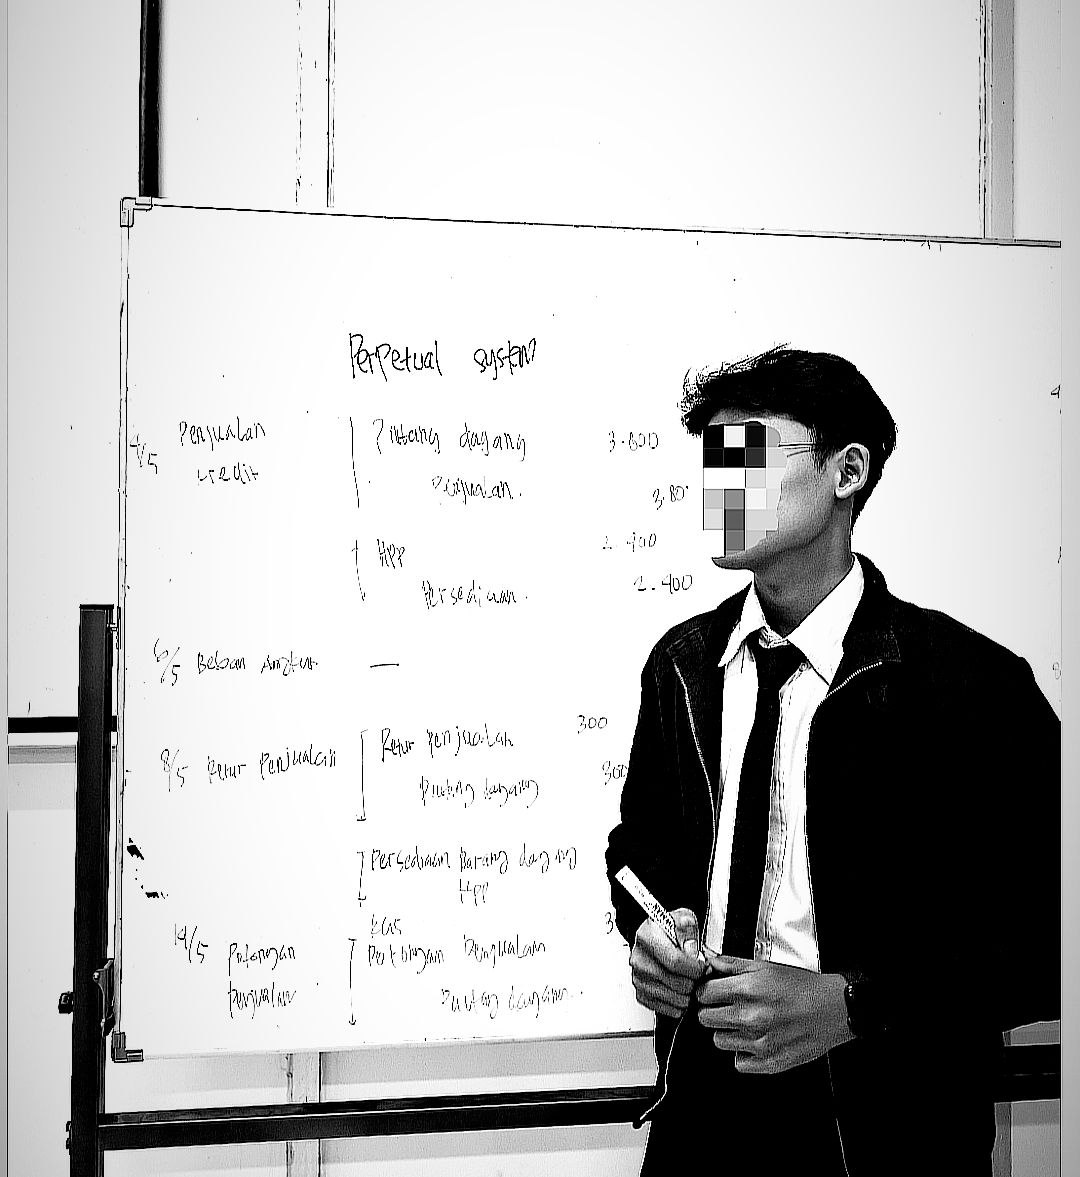 Perpetual system
4/5 Penjualan Piutang dagang 3.800
credit Penjualan. 3.80
HPP 2.400
Persediaan. 2.400
6/5 Beban Angkut —
8/5 Retur Penjualan Retur penjualan 300
Piutang dagang 300
Persediaan barang dagang
HPP
Kas 3
14/5 Potongan Potongan Penjualan
Penjualan Piutang dagang.